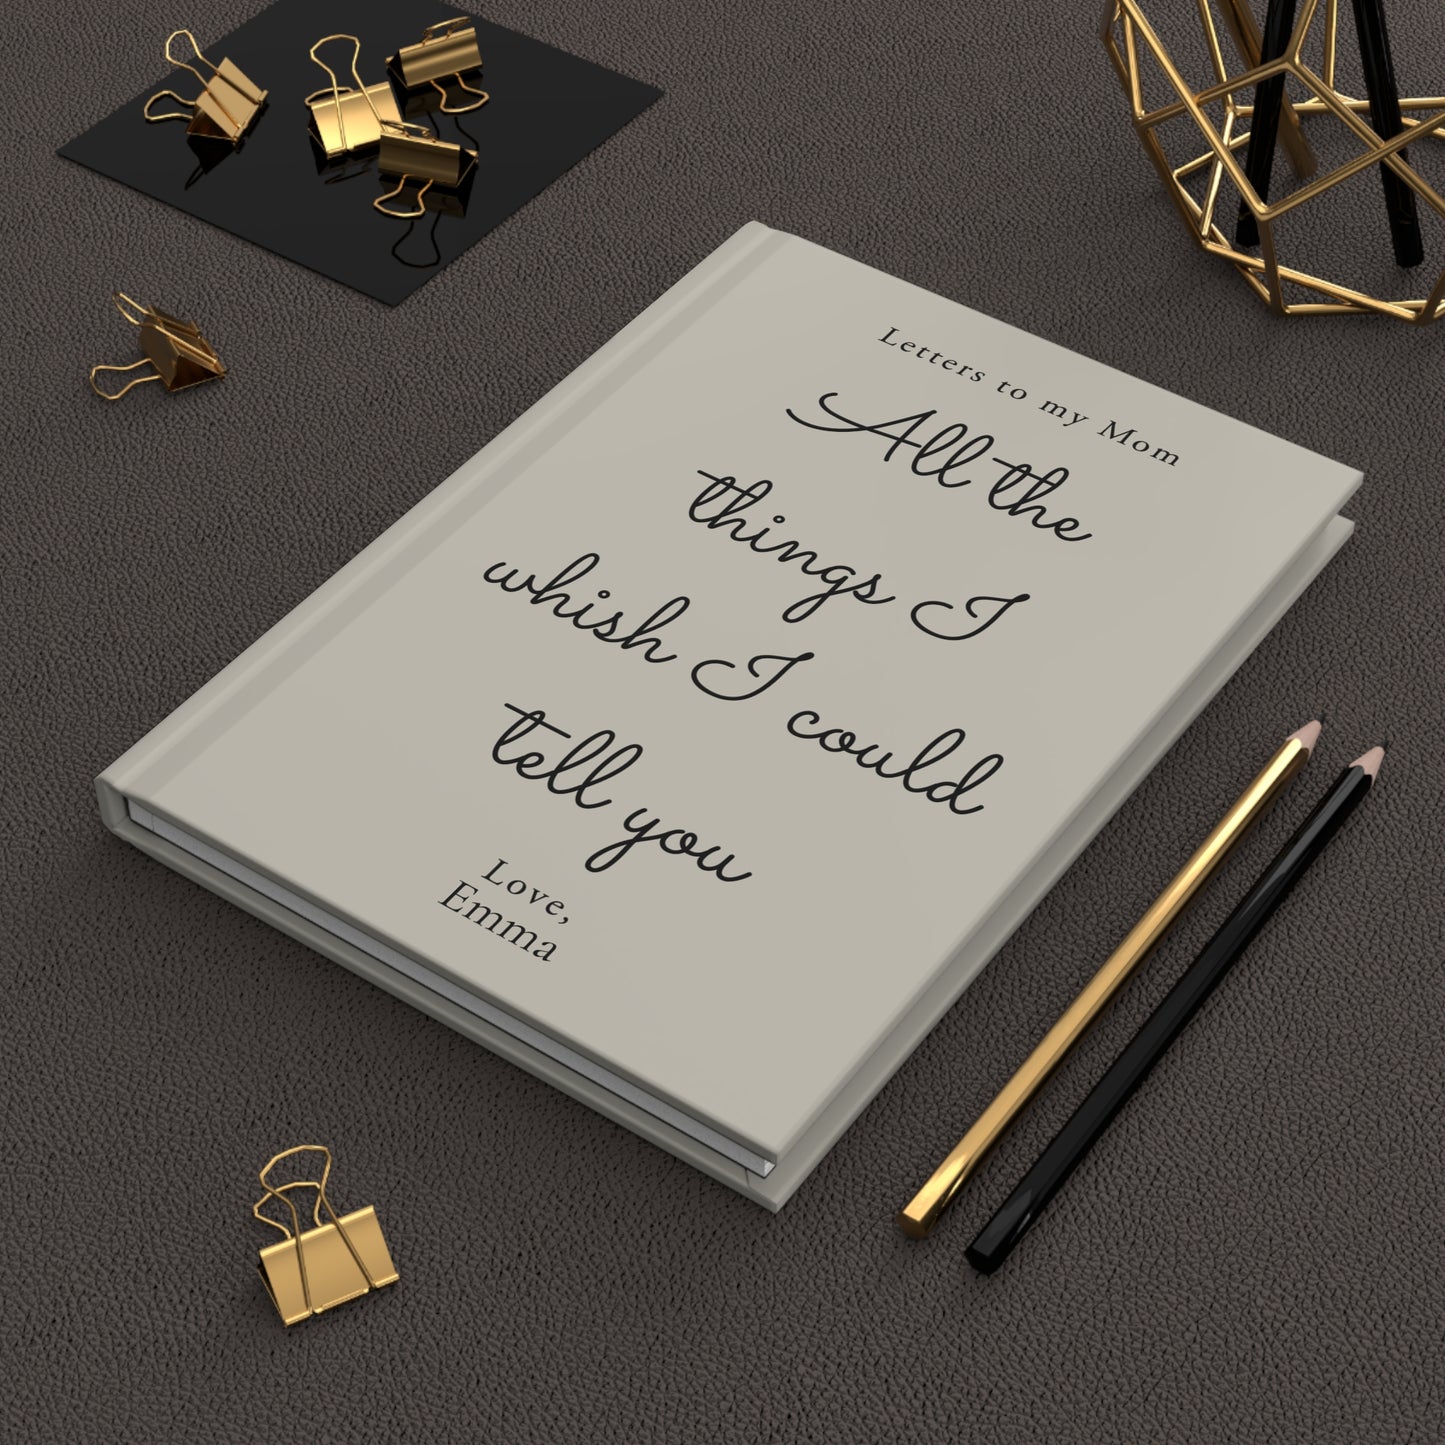 Letters to my Mom
All the
things I
whish I could
tell you
Love,
Emma